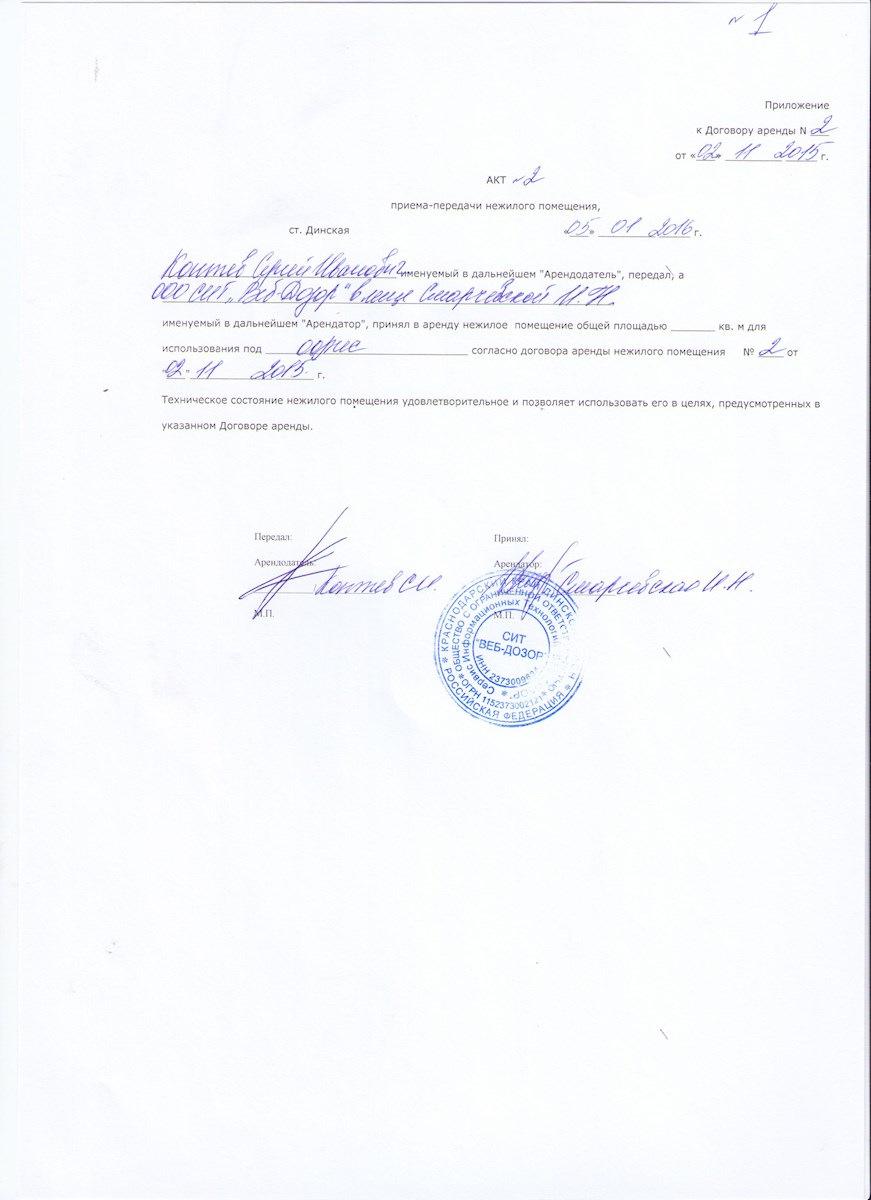 № 1
Приложение
к Договору аренды N 2
от «02» 11 2015 г.
АКТ №2
приема-передачи нежилого помещения,
ст. Динская
05 » 01 2016 г.
Коптев Сергей Иванович именуемый в дальнейшем "Арендодатель", передал, а
ООО СИТ „Веб-Дозор" в лице Старчевской И. Н.
именуемый в дальнейшем "Арендатор", принял в аренду нежилое помещение общей площадью ________ кв. м для
использования под офис согласно договора аренды нежилого помещения № 2 от
02 » 11 2015 г.
Техническое состояние нежилого помещения удовлетворительное и позволяет использовать его в целях, предусмотренных в
указанном Договоре аренды.
Передал:
Принял:
Арендодатель:
Арендатор:
Коптев С.И.
И. Н.
М.П.
М.П.
КРАСНОДАРСКИЙ КРАЙ
ОБЩЕСТВО С ОГРАНИЧЕННОЙ
Сервис Информационных Технологий
СИТ
"ВЕБ-ДОЗОР"
ИНН
ОГРН
РОССИЙСКАЯ ФЕДЕРАЦИЯ